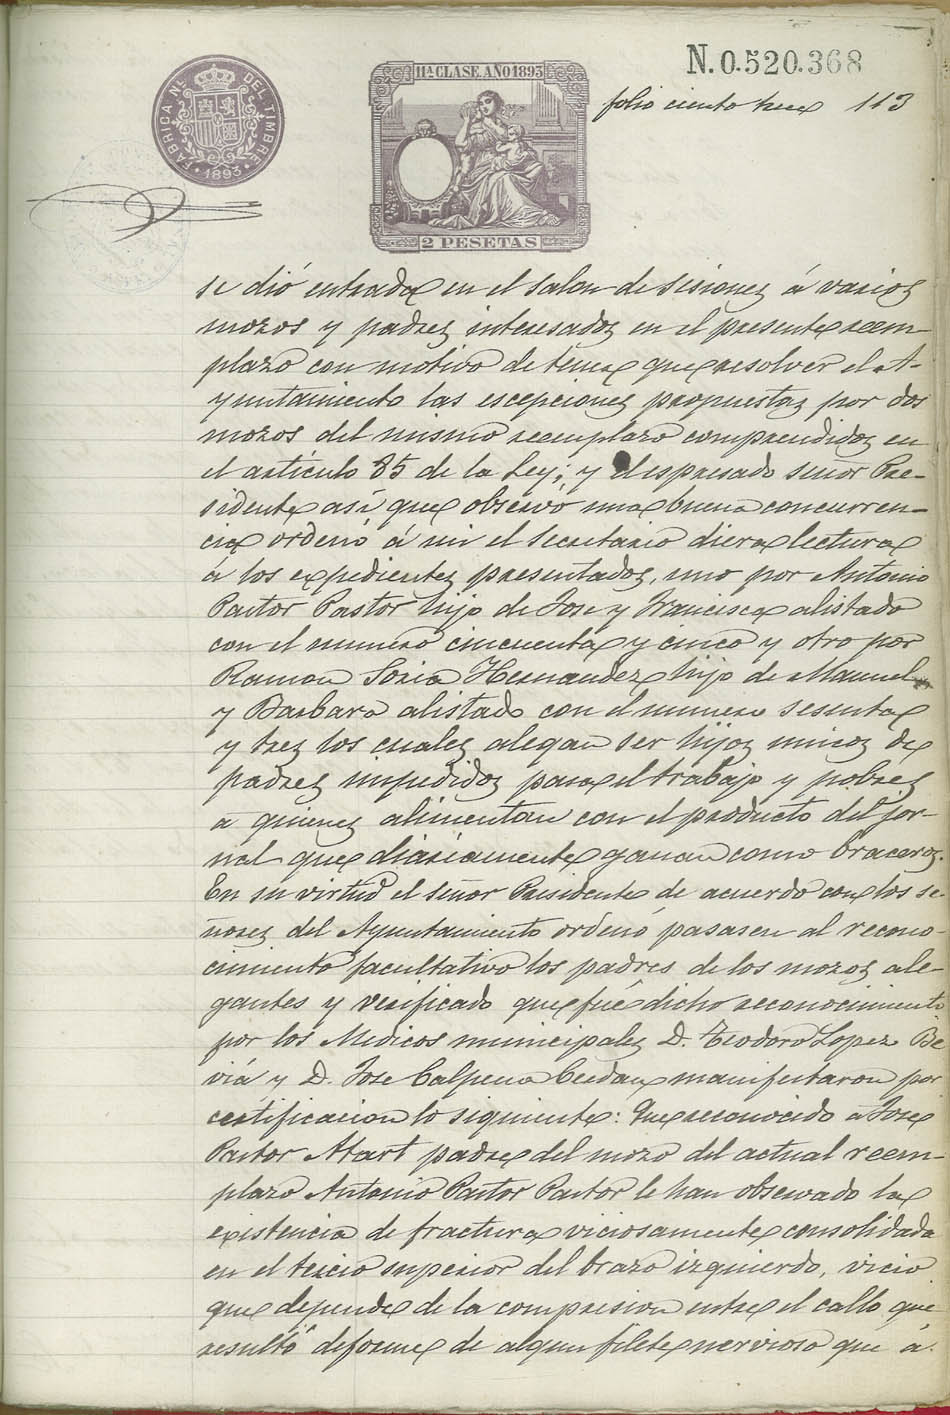 N.0.520.368
FÁBRICA NAL. DEL TIMBRE
1893
11ª CLASE. AÑO 1893
2 PESETAS
folio ciento trece 113
se dió entrada en el salon de sesiones á varios
mozos y padres interesados en el presente reem-
plazo con motivo de tener que resolver el A-
yuntamiento las escepciones propuestas por dos
mozos del mismo reemplazo comprendidos en
el artículo 85 de la Ley; y el espresado señor Pre-
sidente así que observó una buena concurren-
cia ordenó á mi el Secretario diera lectura
á los expedientes presentados, uno por Antonio
Pastor Pastor hijo de Jose y Francisca alistado
con el numero cincuenta y cinco y otro por
Ramon Soria Hernandez hijo de Manuel
y Barbara alistado con el numero sesenta
y tres los cuales alegan ser hijos unicos de
padres impedidos para el trabajo y pobres
a quienes alimentan con el producto del jor-
nal que diariamente ganan como braceros.
En su virtud el señor Presidente de acuerdo con los se-
ñores del Ayuntamiento ordenó pasasen al recono-
cimiento facultativo los padres de los mozos ale-
gantes y verificado que fué dicho reconocimiento
por los Medicos municipales D. Teodoro Lopez Be
viá y D. Jose Calpena manifestaron por
certificacion lo siguiente: Que reconocido a Jose
Pastor padre del mozo del actual reem-
plazo Antonio Pastor Pastor le han observado la
existencia de fractura viciosamente consolidada
en el tercio superior del brazo izquierdo, vicio
que depende de la compresion entre el callo que
resultó deforme de algun filete nervioso que á